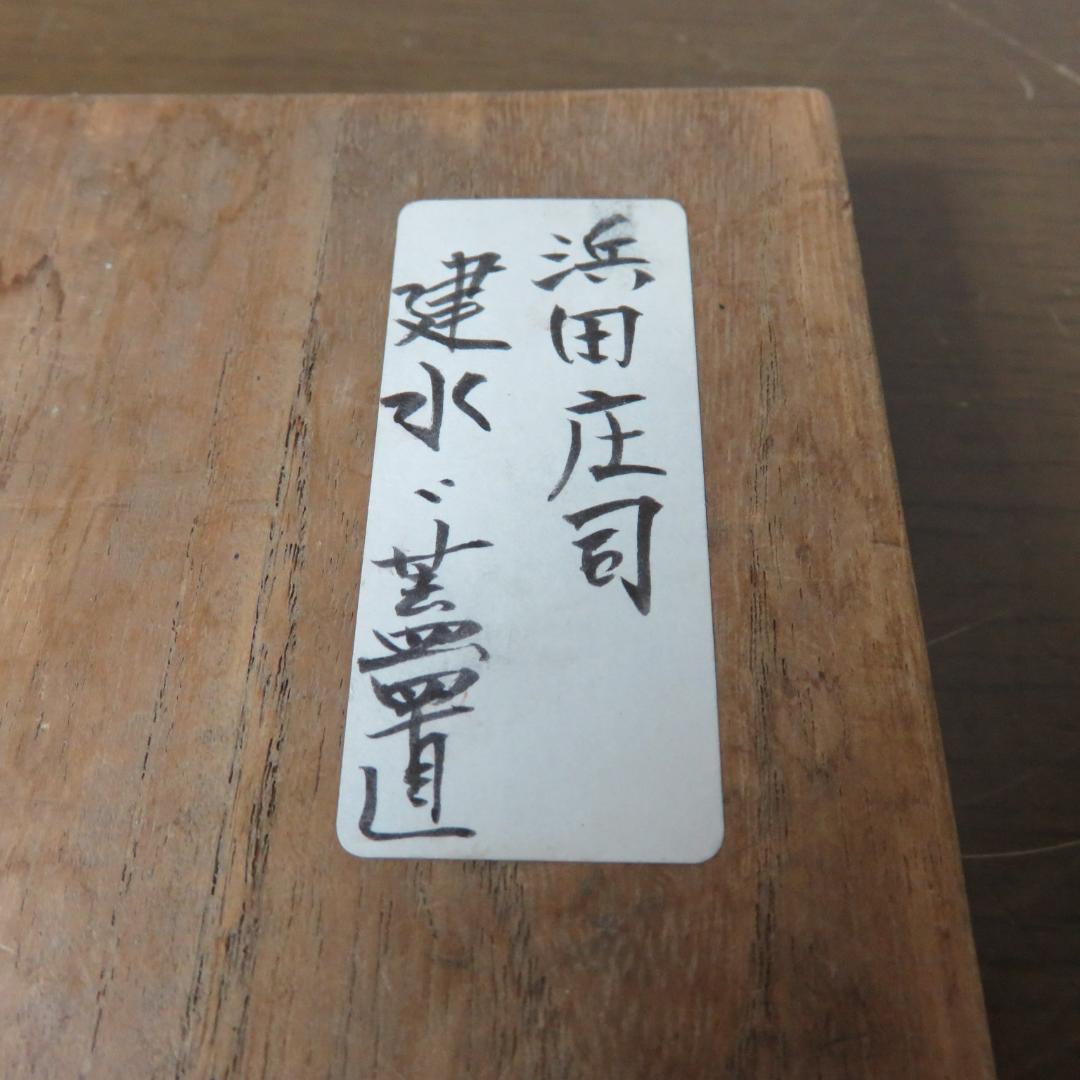 浜田庄司
建水ﾞ蓋置